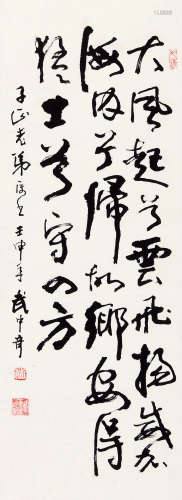 大風起兮雲飛揚威加
海內兮歸故鄉安得
猛士兮守四方
子正老弟屬 壬申年 武中奇